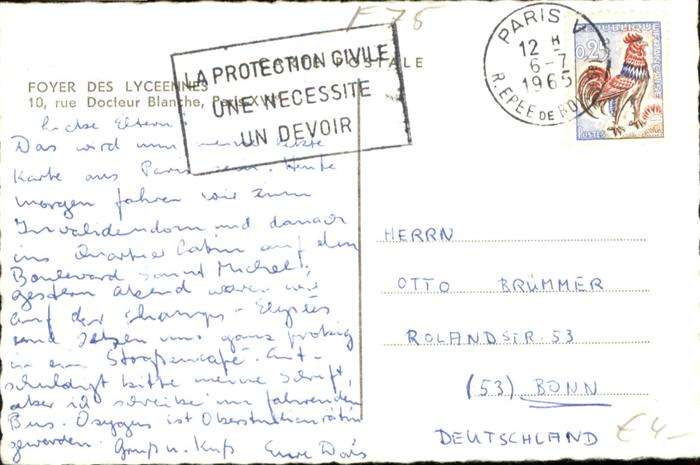 F 75
CARTE POSTALE
FOYER DES LYCEENNES
10, rue Docteur Blanche, Paris XVI
LA PROTECTION CIVILE
UNE NECESSITE
UN DEVOIR
PARIS V
12 H
6-7
1965
R. EPEE DE BOIS
REPUBLIQUE FRANCAISE
0,25
POSTES
Liebe Eltern!
Das wird nun meine letzte
Karte aus Paris sein. Heute
morgen fahren wir zum
Invalidendom und danach
ins Quartier Latin auf den
Boulevard Saint Michel,
gestern abend waren wir
auf der Champs-Elysées
und sassen uns ganz
in ein Straßencafé. Ent-
schuldigt bitte meine Schrift,
aber ich schreibe im fahrenden
Bus. ist Oberstudienrätin
geworden. Gruß u. Kuß Eure Doris
HERRN
OTTO BRÜMMER
ROLANDSTR. 53
(53) BONN
DEUTSCHLAND
€ 4-